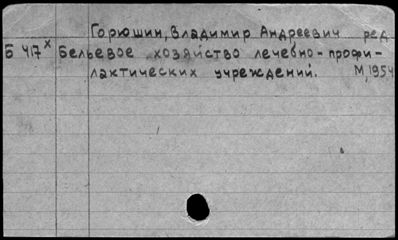 Горюшин, Владимир Андреевич ред.
Б 417ˣ Бельевое хозяйство лечебно-профи-
лактических учреждений. М, 1954